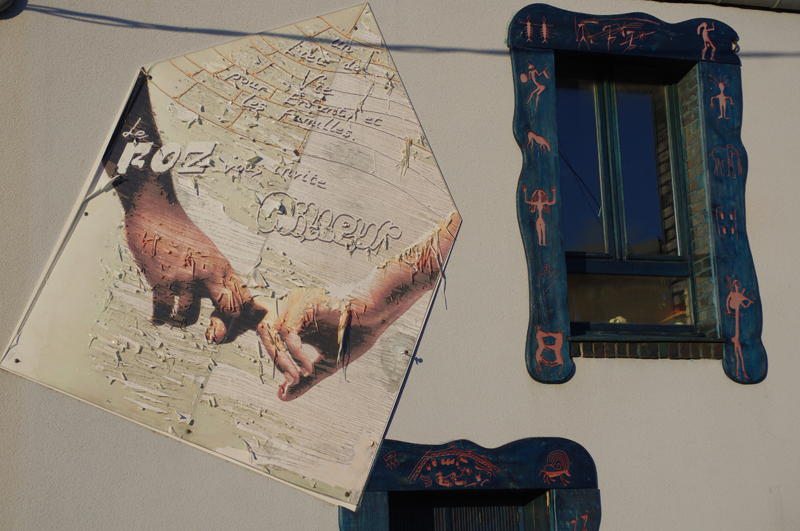 un
Lieu de
Vie
pour Enfants et
les Familles.
Le
ROZ vous invite
Ailleurs